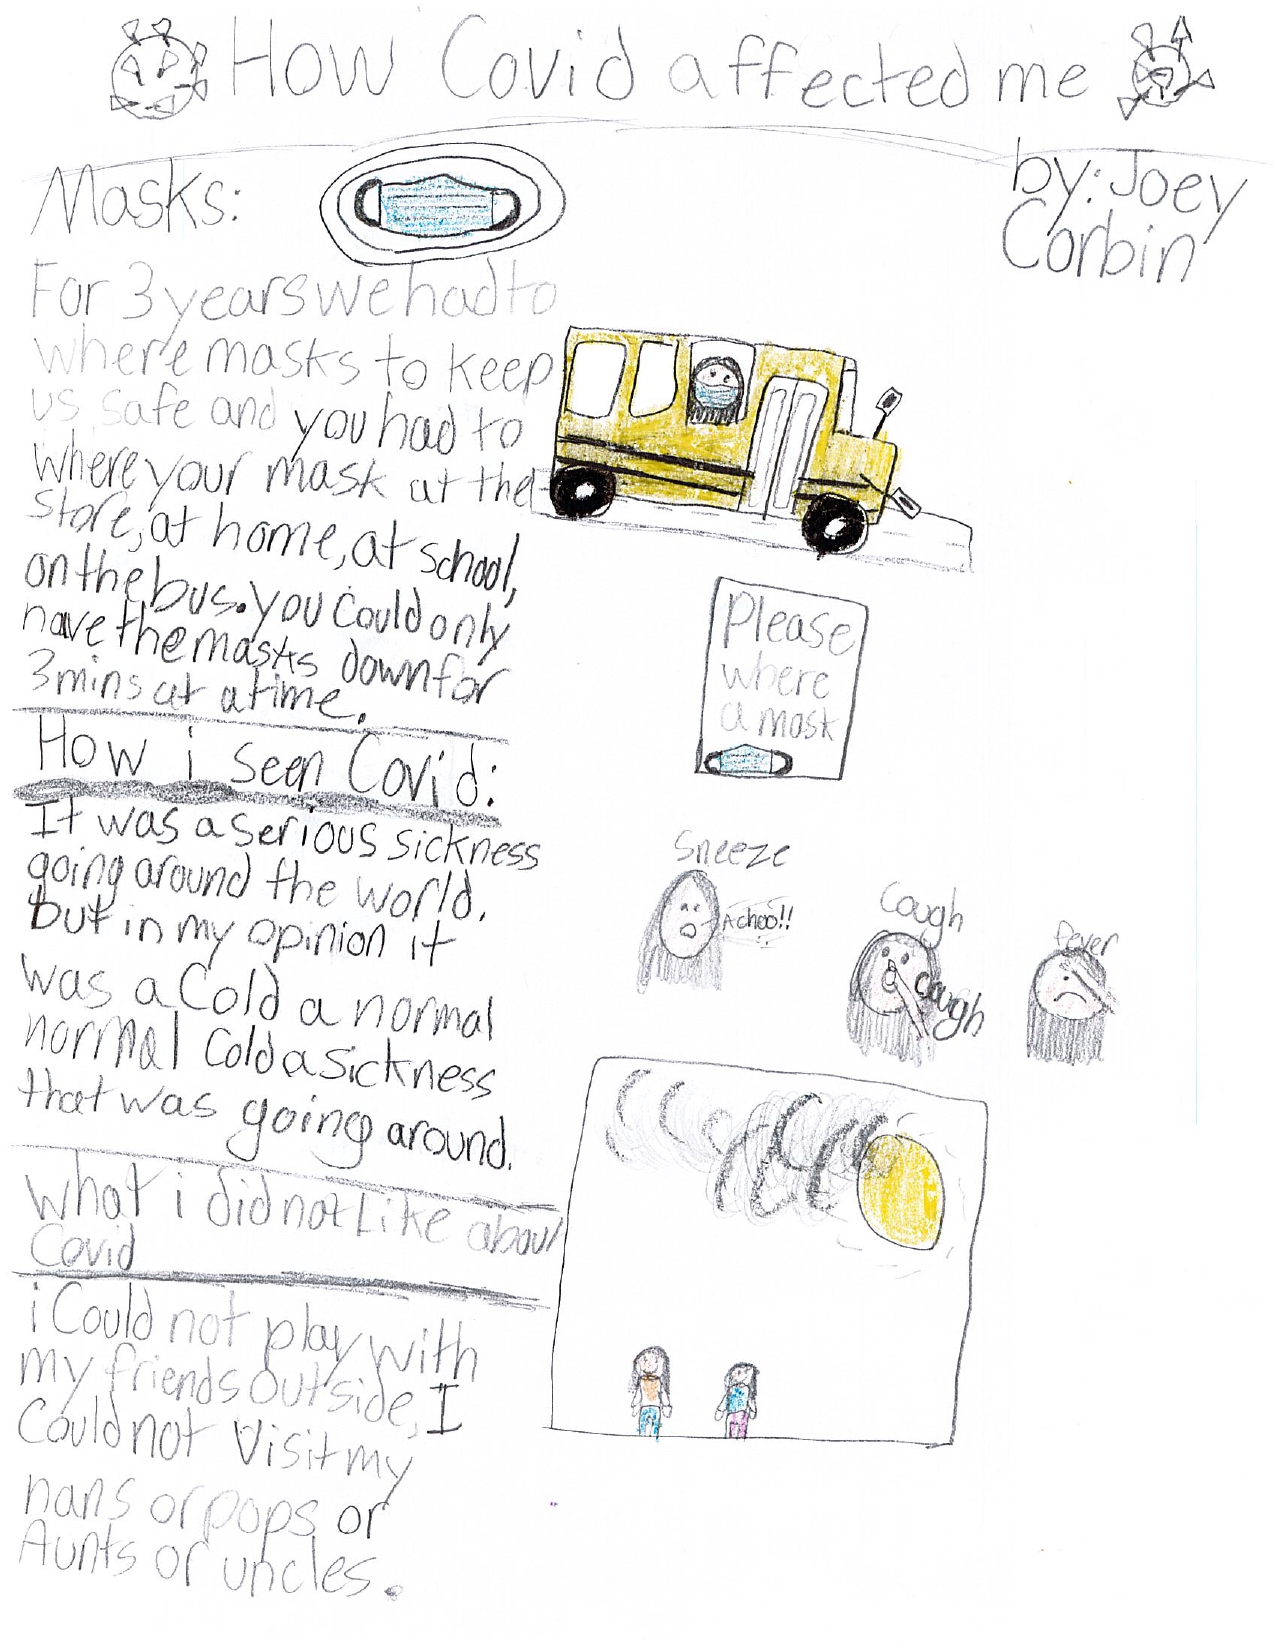 How Covid affected me
by: Joey
Corbin
Masks:
For 3 years we had to
where masks to keep
us safe and you had to
where your mask at the
store, at home, at school,
on the bus. you could only
have the masks down for
3 mins at a time.
Please
where
a mask
How i seen Covid:
It was a serious sickness
going around the world.
but in my opinion it
was a cold a normal
normal cold a sickness
that was going around.
Sneeze
Achoo!!
Cough
Cough
fever
What i did not Like about
Covid
i Could not play with
my friends outside, I
Could not visit my
nans or pops or
Aunts or uncles.